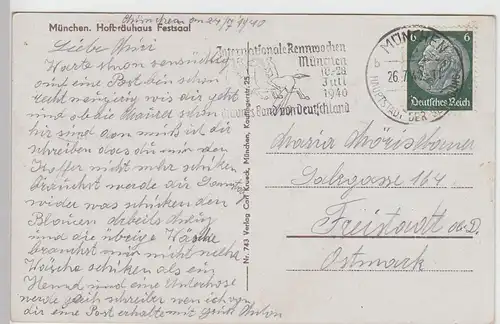 München. Hofbräuhaus Festsaal
München am 24/7 1940
Liebe Mizi
Warte schon
und eine Post bin schon
recht neugierig wie dir geht
und ob die
sind dan muß ich dir
schreiben das du mir den
Koffer nicht mehr schiken
brauchst werde dir
wider was schiken den
Blauen Arbeits Anzug
und die übrige Wäsche
brauchst mir nicht
Wäsche schiken als ein
Hemd und eine Unterhose
werde gleich schreiben wen ich von
dir eine Post erhalte mit Gruß Anton
Nr. 743 Verlag Carl Krneck, München, Kaufingerstr. 25
Internationale Rennwochen
München
18-28
Juli
1940
Braunes Band von Deutschland
MÜNCHEN
b
26.7.40
HAUPTSTADT DER BEWEGUNG
6 6
Deutsches Reich
Maria
Salzgasse 164
Freistadt O.D.
Ostmark